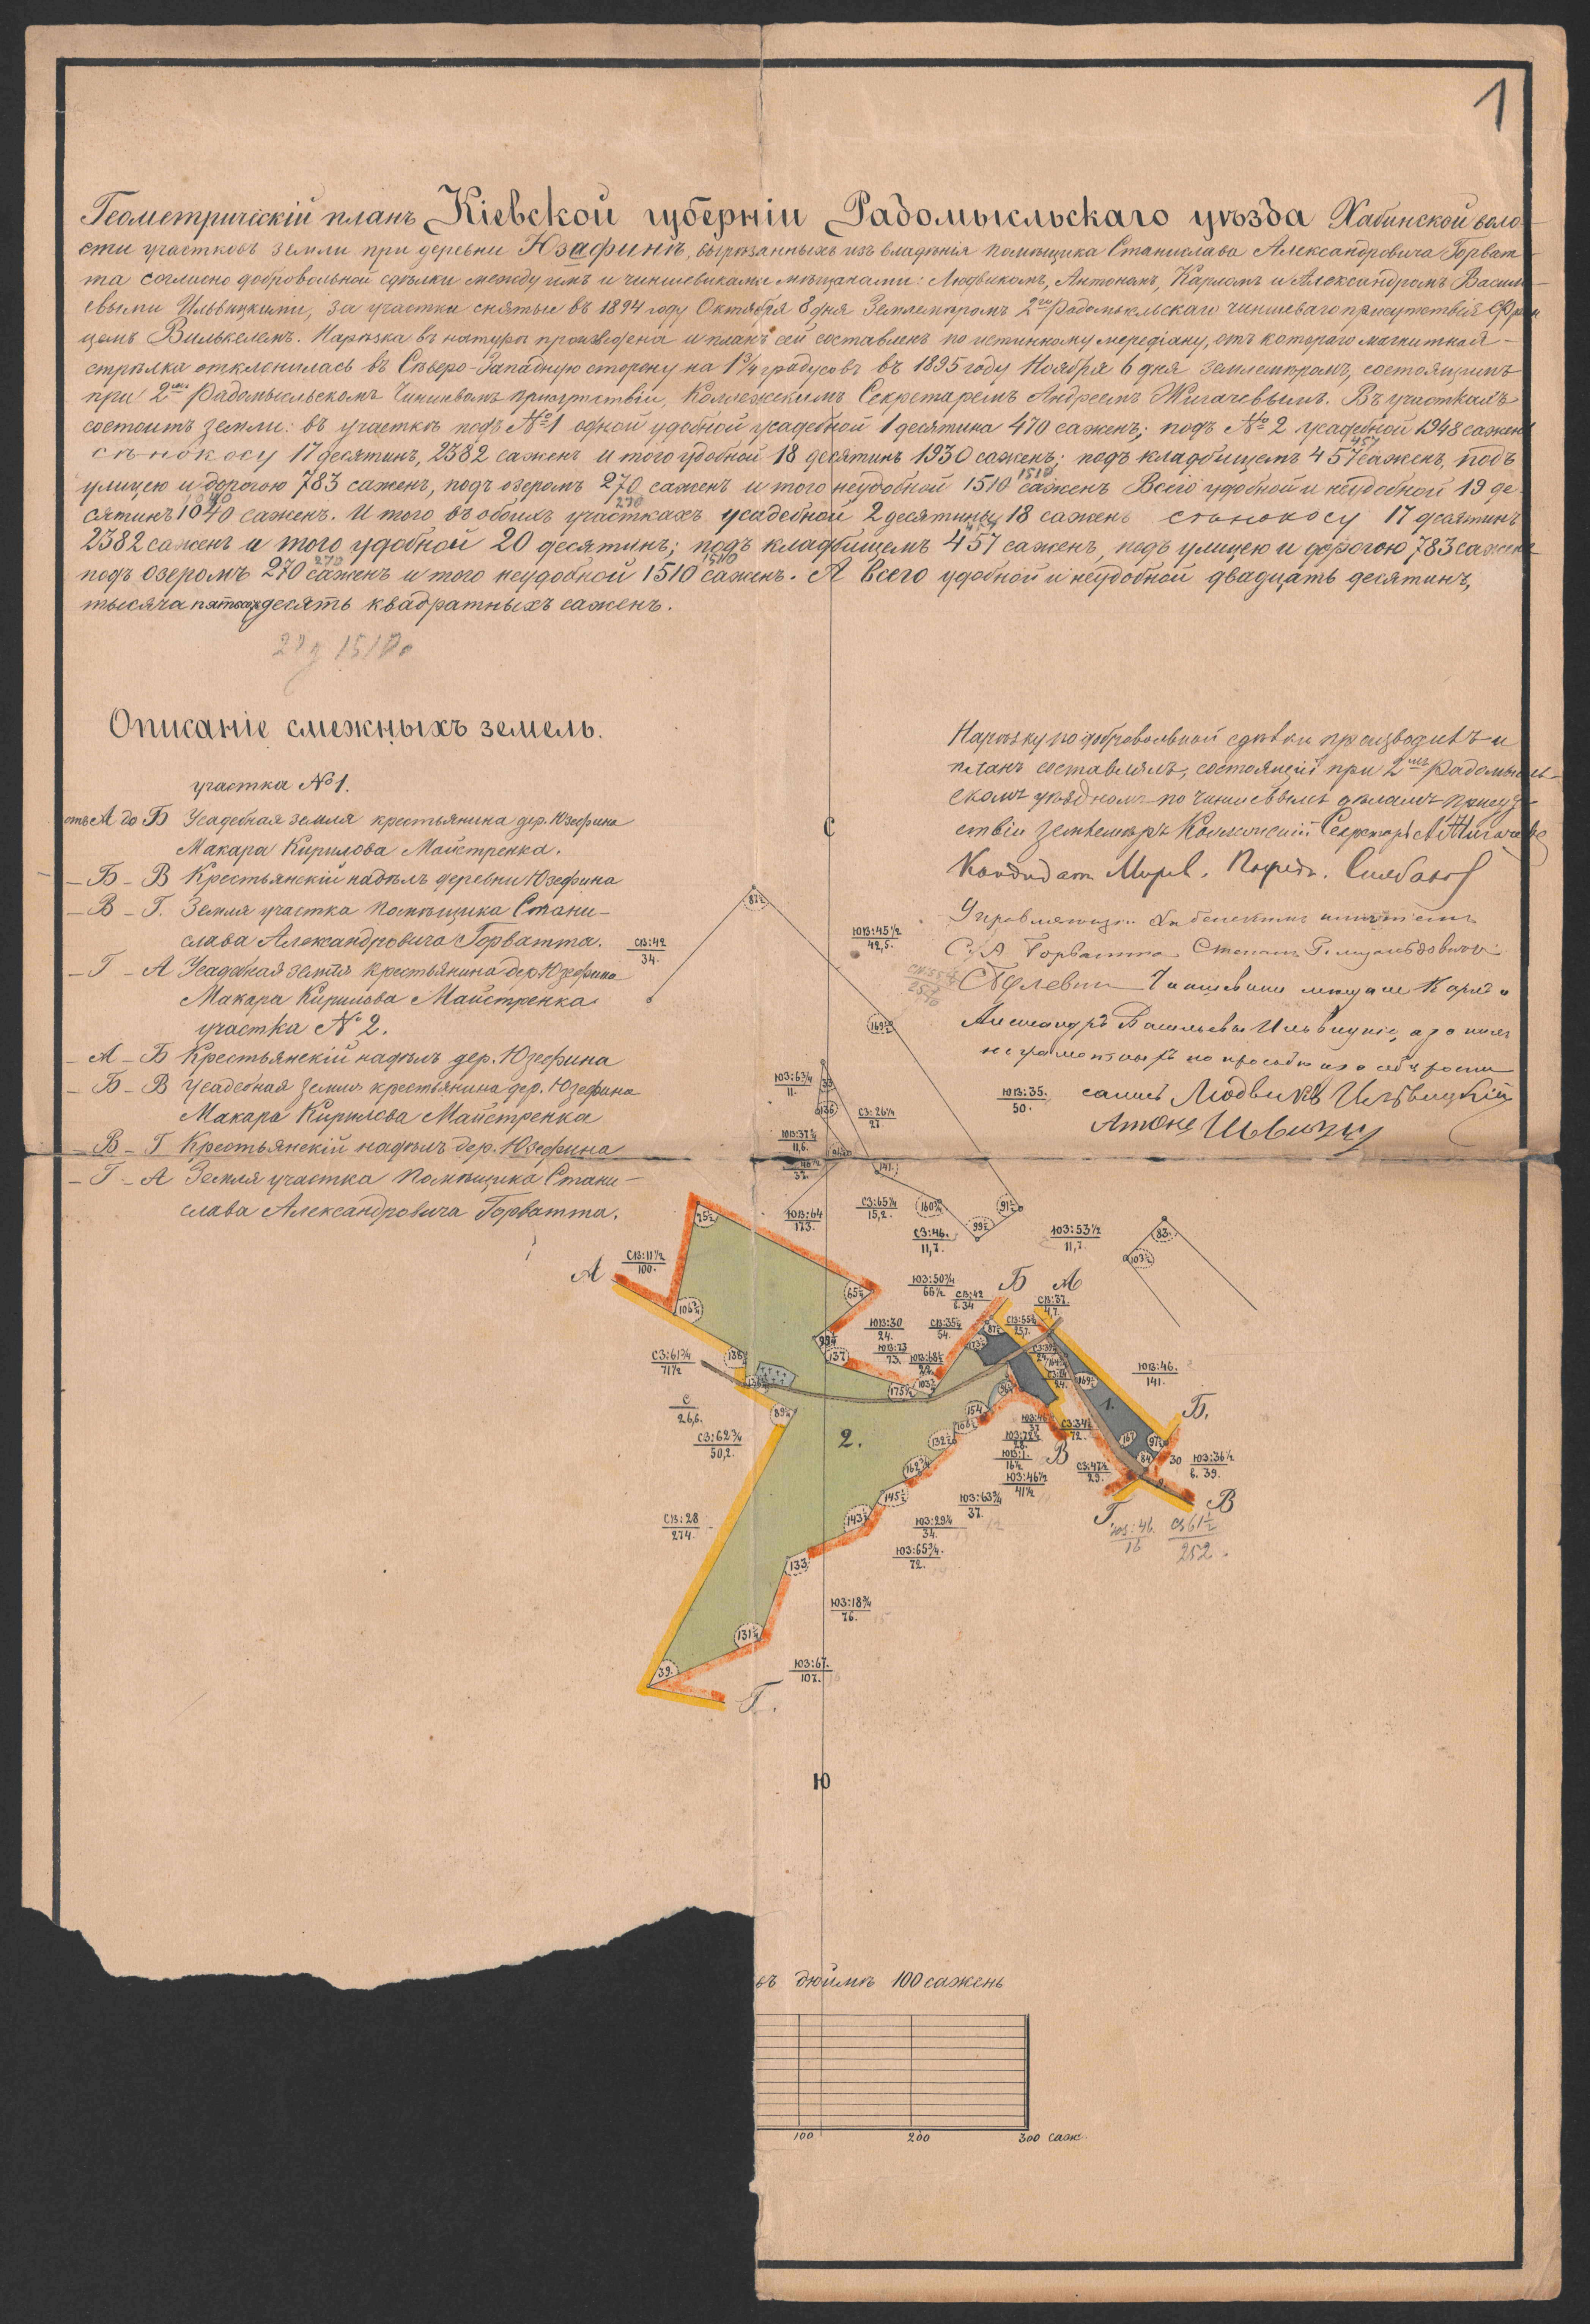 1
Геометрическій планъ Кіевской губерніи Радомысльскаго уѣзда Хабинской воло-
сти участковъ земли при деревни Юзафинѣ, вырѣзанныхъ изъ владѣнія помѣщика Станислава Александровича Горват-
та согласно добровольной сдѣлки между имъ и чиншевиками мѣщанами: Людвикомъ, Антономъ, Карломъ и Александромъ Василь-
евыми Ильвицкими, за участки снятые въ 1894 году Октября 8 дня Землемѣромъ 2го Радомысльскаго чиншеваго присутствія Фран
цемъ Вилькелемъ. Нарѣзка въ натурѣ произведена и планъ сей составленъ по истинному меридіану, отъ котораго магнитная-
стрѣлка отклонилась въ Сѣверо-Западную сторону на 1¾ градусовъ въ 1895 году Ноября 6 дня землемѣромъ, состоящимъ
при 2мъ Радомысльскомъ Чиншевомъ присутствіи, Коллежскимъ Секретаремъ Андреемъ Жигачевымъ. Въ участкахъ
состоитъ земли: въ участкѣ подъ №1 одной удобной усадебной 1 десятина 470 саженъ; подъ № 2 усадебной 1948 сажен
сѣнокосу 17 десятинъ, 2382 саженъ и того удобной 18 десятинъ 1930 саженъ; подъ кладбищемъ 457 саженъ, подъ
улицею и дорогою 783 саженъ, подъ озеромъ 270 саженъ и того неудобной 1510 саженъ Всего удобной и неудобной 19 де
сятинъ 1040 саженъ. И того въ обоихъ участкахъ усадебной 2 десятины 18 саженъ сѣнокосу 17 десятинъ
2382 саженъ и того удобной 20 десятинъ; подъ кладбищемъ 457 саженъ, подъ улицею и дорогою 783 сажен
подъ озеромъ 270 саженъ и того неудобной 1510 саженъ. А всего удобной и неудобной двадцать десятинъ,
тысяча пятьсотъ десять квадратныхъ саженъ.
Описаніе смежныхъ земель.
участка №1.
отъ А до Б Усадебная земля крестьянина дер. Юзефина
Макара Кирилова Майстренка.
— Б — В Крестьянскій надѣлъ деревни Юзефина
— В — Г. Земля участка помѣщика Стани-
слава Александровича Горватта.
— Г — А Усадебная земля крестьянина дер Юзефина
Макара Кирилова Майстренка
участка № 2.
— А — Б Крестьянскій надѣлъ дер. Юзефина
— Б — В Усадебная земля крестьянина дер. Юзефина
Макара Кирилова Майстренка
— В — Г Крестьянскій надѣлъ дер. Юзефина
— Г — А Земля участка Помѣщика Стани-
слава Александровича Горватта.
Нарѣзку по добровольной сдѣлки производилъ и
планъ составлялъ, состоящій при 2мъ Радомысль-
скомъ уѣздномъ по чиншевымъ дѣламъ присут-
ствіи землемѣръ Коллежскій Секретарь А Жигачевъ
Кандидат Миров. Посредн.
Управляющій Хабенскимъ имѣніемъ
С. А. Горватта Степанъ
Чиншевики мѣщане Карлъ и
Александръ Васильевы Ильвицкіе, а за нихъ
неграмотныхъ по просьбѣ и за себя роспи
сались Людвикъ Ильвицкій
Антонъ
С
87½
СВ:42
34.
ЮВ:45½
42,5.
169½
ЮЗ:6¾
11.
33
136
СЗ:26¼
27.
ЮВ:35.
50.
ЮВ:37¾
11,6.
141.
СЗ:65¼
15,2.
160¾
99½
91½
ЮВ:64
173.
СЗ:46.
11,7.
ЮЗ:53½
11,7.
83.
103½
А
СВ:11½
100.
75½
106¾
65½
ЮЗ:50¾
66½
СВ:42
в.34
Б
А
СВ:37.
4,7.
ЮВ:30
24.
ЮВ:73
73.
СВ:35¼
54.
137
СЗ:61¾
71½
175½
ЮВ:46.
141.
С
26,6.
СЗ:62¾
50,2.
89¼
2.
1.
154
169½
Б.
В
СЗ:34½
72.
ЮВ:1.
16½
ЮЗ:46½
41½
СЗ:47½
29.
84
30
ЮЗ:36½
в. 39.
В
Г
ЮЗ:46.
16
СЗ 61½
252.
162¾
145½
143½
ЮЗ:63¾
37.
ЮЗ:29¼
34.
ЮЗ:65¾.
72.
СВ:28
274.
133
ЮЗ:18¾
76.
131¼
39.
ЮЗ:67.
107.
Г.
Ю
въ дюймѣ 100 сажень
100 200 300 саж.